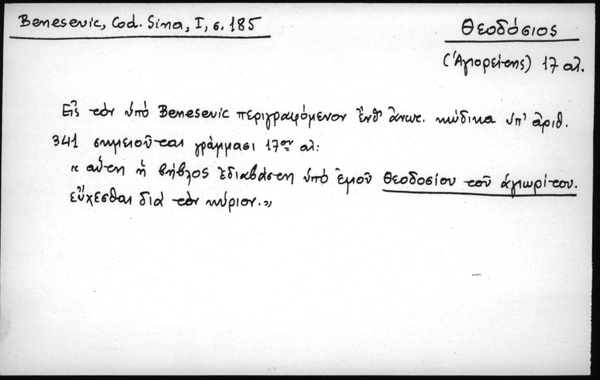 Benesevic, Cod. Sina, I, σ. 185
Θεοδόσιος
(Ἁγιορείτης) 17 αἰ.
Εἰς τὸν ὑπὸ Benesevic περιγραφόμενον ἔνθ' ἀνωτ. κώδικα ὑπ' ἀριθ.
341 σημειοῦται γράμμασι 17ου αἰ:
« αὕτη ἡ βήβλος ἐδιαβάστη ὑπὸ ἐμοῦ Θεοδοσίου τοῦ ἁγιωρίτου.
εὔχεσθαι διὰ τὸν κύριον.»